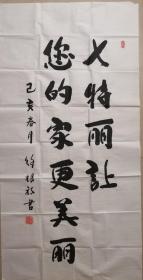 七特丽让
您的家更美丽
己亥春月
书